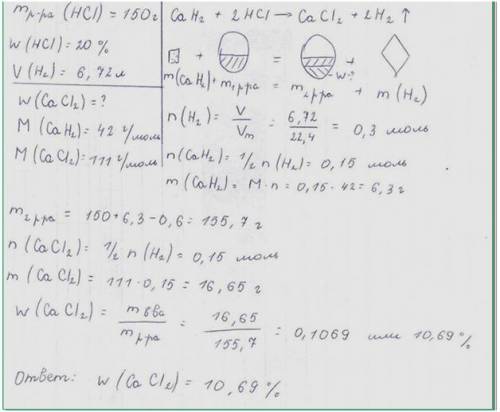 m р-ра (HCl) = 150 г
W (HCl) = 20 %
V (H₂) = 6,72 л
W (CaCl₂) = ?
M (CaH₂) = 42 г/моль
M (CaCl₂) = 111 г/моль
CaH₂ + 2HCl → CaCl₂ + 2H₂ ↑
+ = + 
W?
m (CaH₂) + m₁ р-ра = m₂ р-ра + m (H₂)
n (H₂) = V/Vm = 6,72/22,4 = 0,3 моль
n (CaH₂) = 1/2 n (H₂) = 0,15 моль
m (CaH₂) = M · n = 0,15 · 42 = 6,3 г
m₂ р-ра = 150 + 6,3 - 0,6 = 155,7 г
n (CaCl₂) = 1/2 n (H₂) = 0,15 моль
m (CaCl₂) = 111 · 0,15 = 16,65 г
W (CaCl₂) = m в-ва/m р-ра = 16,65/155,7 = 0,1069 или 10,69 %
Ответ: W (CaCl₂) = 10,69 %